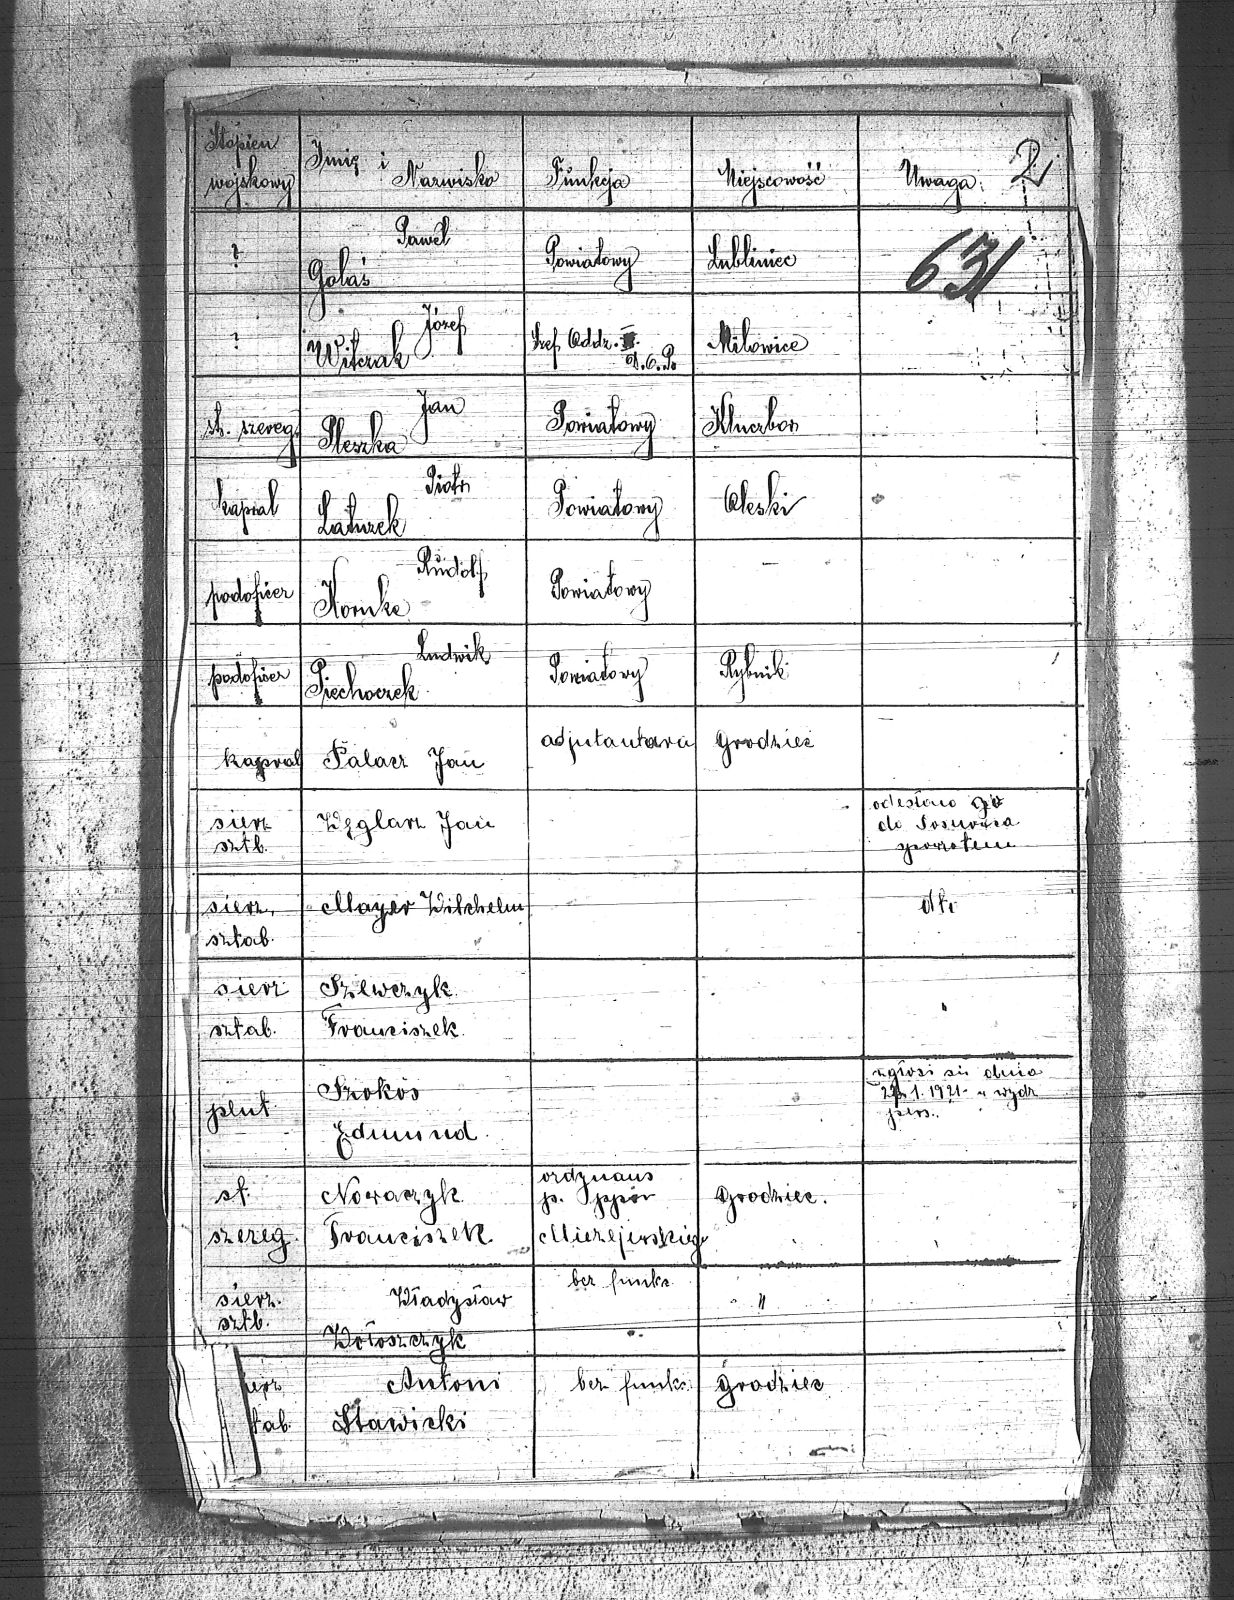 Stopień
wojskowy
Imię i
Nazwisko
Funkcja
Miejscowość
Uwaga
2
?
Paweł
Golaś
Powiatowy
Lubliniec
631
?
Józef
Witczak
Szef Oddz.
D.O.P.
Milowice
st. szereg.
Jan
Pleszka
Powiatowy
Kluczbor
kapral
Piotr
Laturek
Powiatowy
Oleski
podoficer
Rudolf
Kornke
Powiatowy
podoficer
Ludwik
Piechoczek
Powiatowy
Rybnik
kapral
Palacz Jan
adjutantura
Grodziec
sierz
sztb.
Węglarz Jan
odesłano go
do Sosnowca
spowrotem
sierz.
sztab.
Mayer Wilhelm
dto
sierz
sztab.
Szewczyk
Franciszek
plut
Szokós
Edmund
zgłosi się dnia
1. 1921 u wydz
pers.
st.
szereg.
Nowaczyk
Franciszek
ordynans
p. ppor
Mizejewskiego
Grodziec.
sierz.
sztb.
Władysław
Wołoszczyk
bez funkc
"
ierz
tab
Antoni
Stawicki
bez funkc
Grodziec